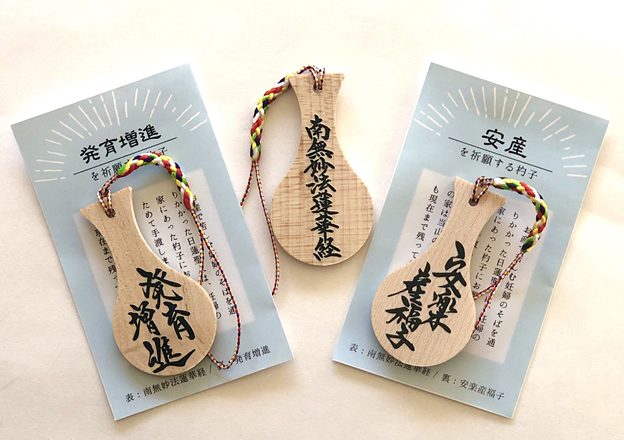 発育増進
を祈願
りかかった日蓮聖
家にあった杓子に
ためて手渡し
現在まで残
発育
増進
表：南無妙法蓮華経 /
発育増進
南無妙法蓮華経
安産
を祈願する杓子
む妊婦のそばを通
りかかった日蓮聖
家にあった杓子にお
の家は当山の
も現在まで残って
安楽
産福子
表：南無妙法蓮華経 / 裏：安楽産福子